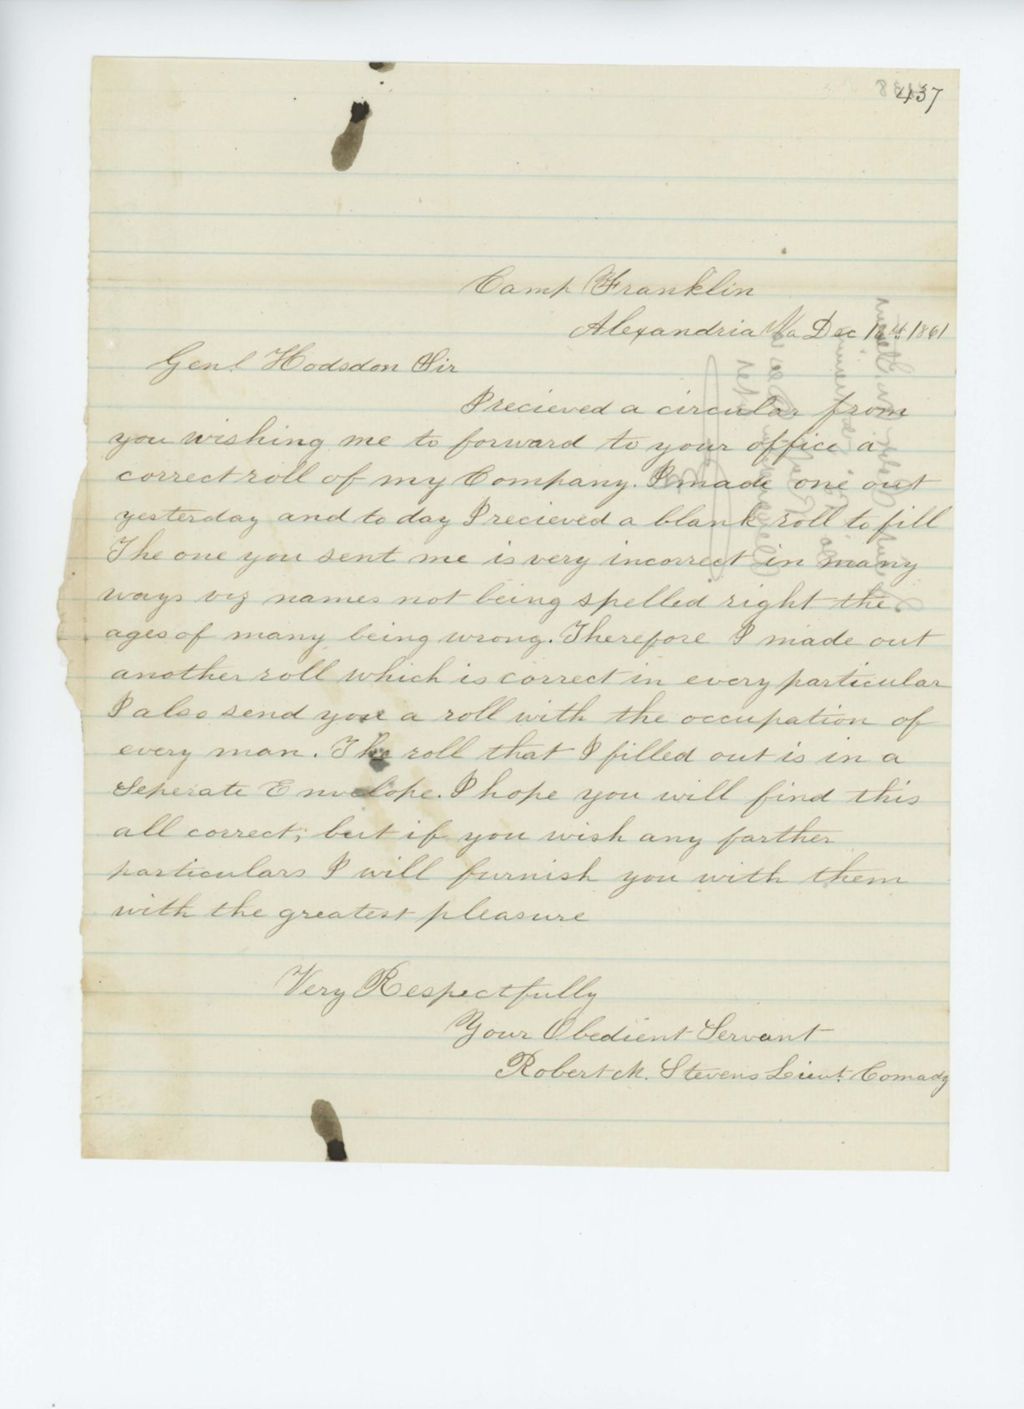 437
Camp Franklin
Alexandria Va Dec 1861
Genl Hodsdon Sir
I recieved a circular from
you wishing me to forward to your office a
correct roll of my Company. I made one out
yesterday and to day I recieved a blank roll to fill
The one you sent me is very incorrect in many
ways viz names not being spelled right the
ages of many being wrong. Therefore I made out
another roll which is correct in every particular
I also send you a roll with the occupation of
every man. The roll that I filled out is in a
Seperate Envelope. I hope you will find this
all correct; but if you wish any farther
particulars I will furnish you with them
with the greatest pleasure
Very Respectfully
Your Obedient Servant
Robert M. Stevens Lieut. Comadg